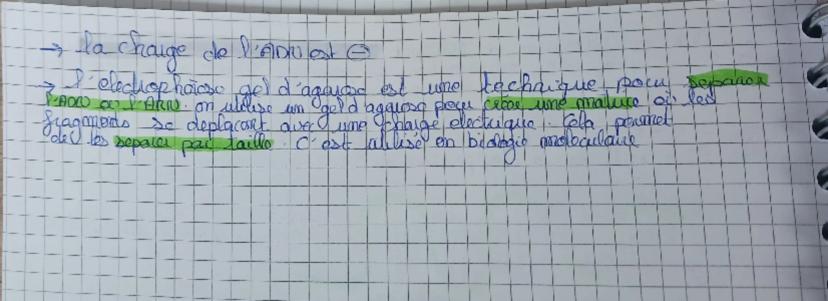 → la charge de l'ADN est ⊖
→ l'electrophorese gel d'agarose est une technique pour separer
l'ADN ou l'ARN. on utilise un gel d'agarose pour créer une matrice où les
fragments se deplacent avec une charge electrique. Cela permet
de les separer par taille. C'est utilisé en biologie moleculaire